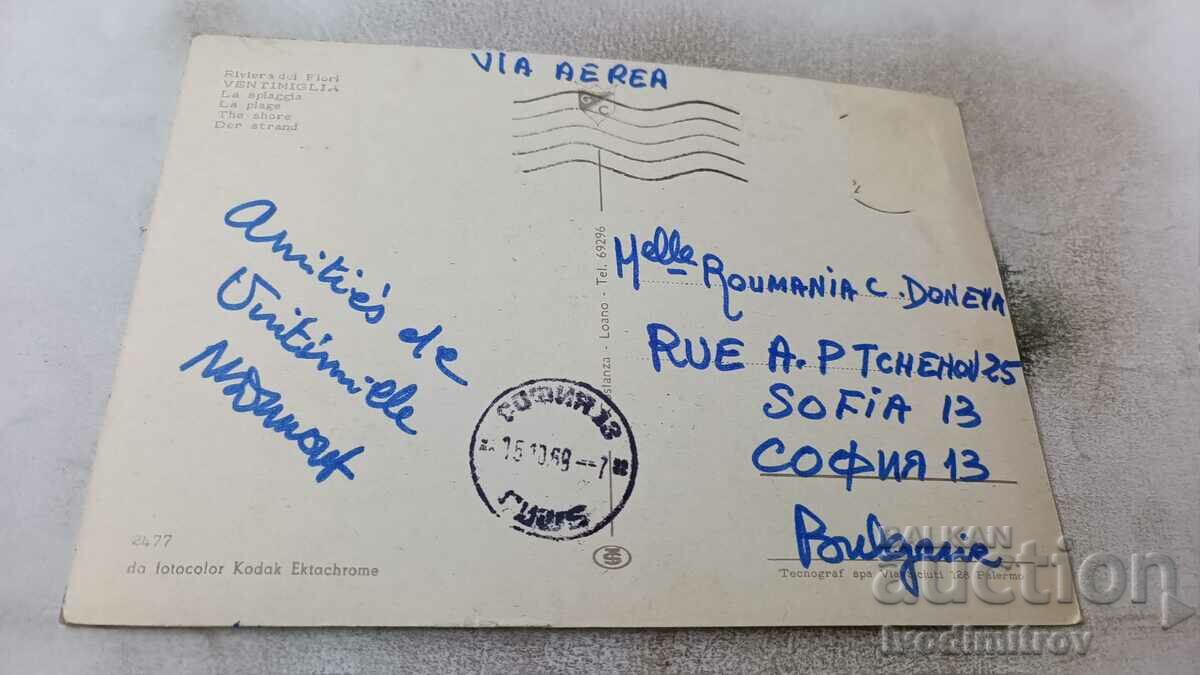 VIA AEREA
Riviera dei Fiori
VENTIMIGLIA
La spiaggia
La plage
The shore
Der strand
G C
Amitiés de
Vintimille
Mlle ROUMANIA C. DONEVA
RUE A. P TCHEHOV 25
SOFIA 13
СОФИЯ 13
Bulgarie
Loano - Tel. 69296
СОФИЯ 13
15.10.69 -- 7
SOFIA
2477
da fotocolor Kodak Ektachrome
Tecnograf spa Via Sciuti 128 Palermo
BALKAN
auction
ivodimitrov